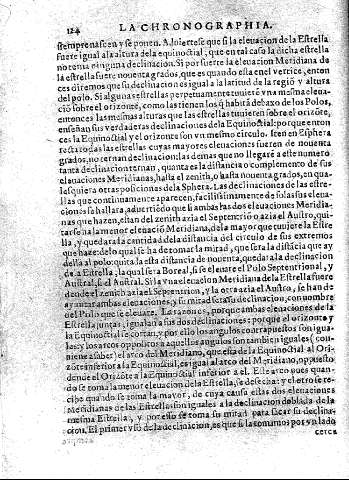 124 LA CHRONOGRAPHIA.
siempre nascen y se ponen. Aduiertese que si la eleuacion de la Estrella
fuere igual a la altura de la equinoctial, que en tal caso la dicha estrella
no terna ninguna declinacion. Si por suerte la eleuacion Meridiana de
la estrella fuere nouenta grados, que es quando esta en el vertice, enton
ces diremos que su declinacion es igual a la latitud de la region y altura
del polo. Si algunas estrellas perpetuamente tuuierẽ vna mesma eleua
ciõ sobre el orizonte, como las tienen los q̃ habitã debaxo de los Polos,
entonces las mesmas alturas que las estrellas tuuieren sobre el orizõte,
enseñan sus verdaderas declinaciones de la Equinoctial: porque enton
ces la Equinoctial y el orizonte son vn mesmo circulo. Iten en Esphera
recta todas las estrellas cuyas mayores eleuaciones fueren de nouenta
grados, no ternan declinacion: las demas que no llegarẽ a este numero
tanta declinacion ternan, quanta es la distancia o complemento de sus
eleuaciones Meridianas, hasta el zenith, o hasta nouenta grados, en qua
lesquiera otras posiciones de la Sphera. Las declinaciones de las estre-
llas que continuamente aparecen, facilissimamente de solas sus eleua-
ciones se hallarã, aduertiẽdo que si ambas las dos eleuaciones Meridia-
nas que hazen, estan del zenith azia el Septentriõ o azia el Austro, qui-
tarse ha la menor eleuaciõ Meridiana, de la mayor que tuuiere la Estre
lla, y quedara la cantidad de la distancia del circulo de sus extremos
que haze: de lo qual se ha de tomar la mitad, que sera la distãcia que ay
della al polo: quita la esta distancia de nouenta, quedara la declinacion
de la Estrella, la qual sera Boreal, si se eleuare el Polo Septentrional, y
Austral, si el Austral. Si la vna eleuacion Meridiana de la Estrella fuere
dende el zenith azia el Septentrion, y la otra azia el Austro, se han de
ayuntar ambas eleuaciones, y su mitad sera su declinacion, con nombre
del Polo que se eleuare. La razon es, porque ambas eleuaciones de la
Estrella juntas, igualan a sus dos declinaciones: porque el orizonte y
la Equinoctial se cortan, y por ello los angulos contrapuestos son igua
les: y los arcos oppositos a aquellos angulos son tambien iguales (con-
uiene a saber) el arco del Meridiano, que esta de la Equinoctial al Ori-
zõte inferior a la Equinoctial, es igual al arco del Meridiano, oppuesto
dende el Orizõte a la Equinoctial inferior a el. Este arco pues quan-
do se toma la menor eleuacion de la Estrella, se desecha: y el otro se re-
cibe quando se toma la mayor, de cuya causa estas dos eleuaciones
Meridianas de las Estrellas son iguales a la declinacion doblada de la
mesma Estrella, y por esso se toma su mitad para sacar su declina-
cion. El primer vso de la declinacion, es que si la tomamos por vn lado
cerca